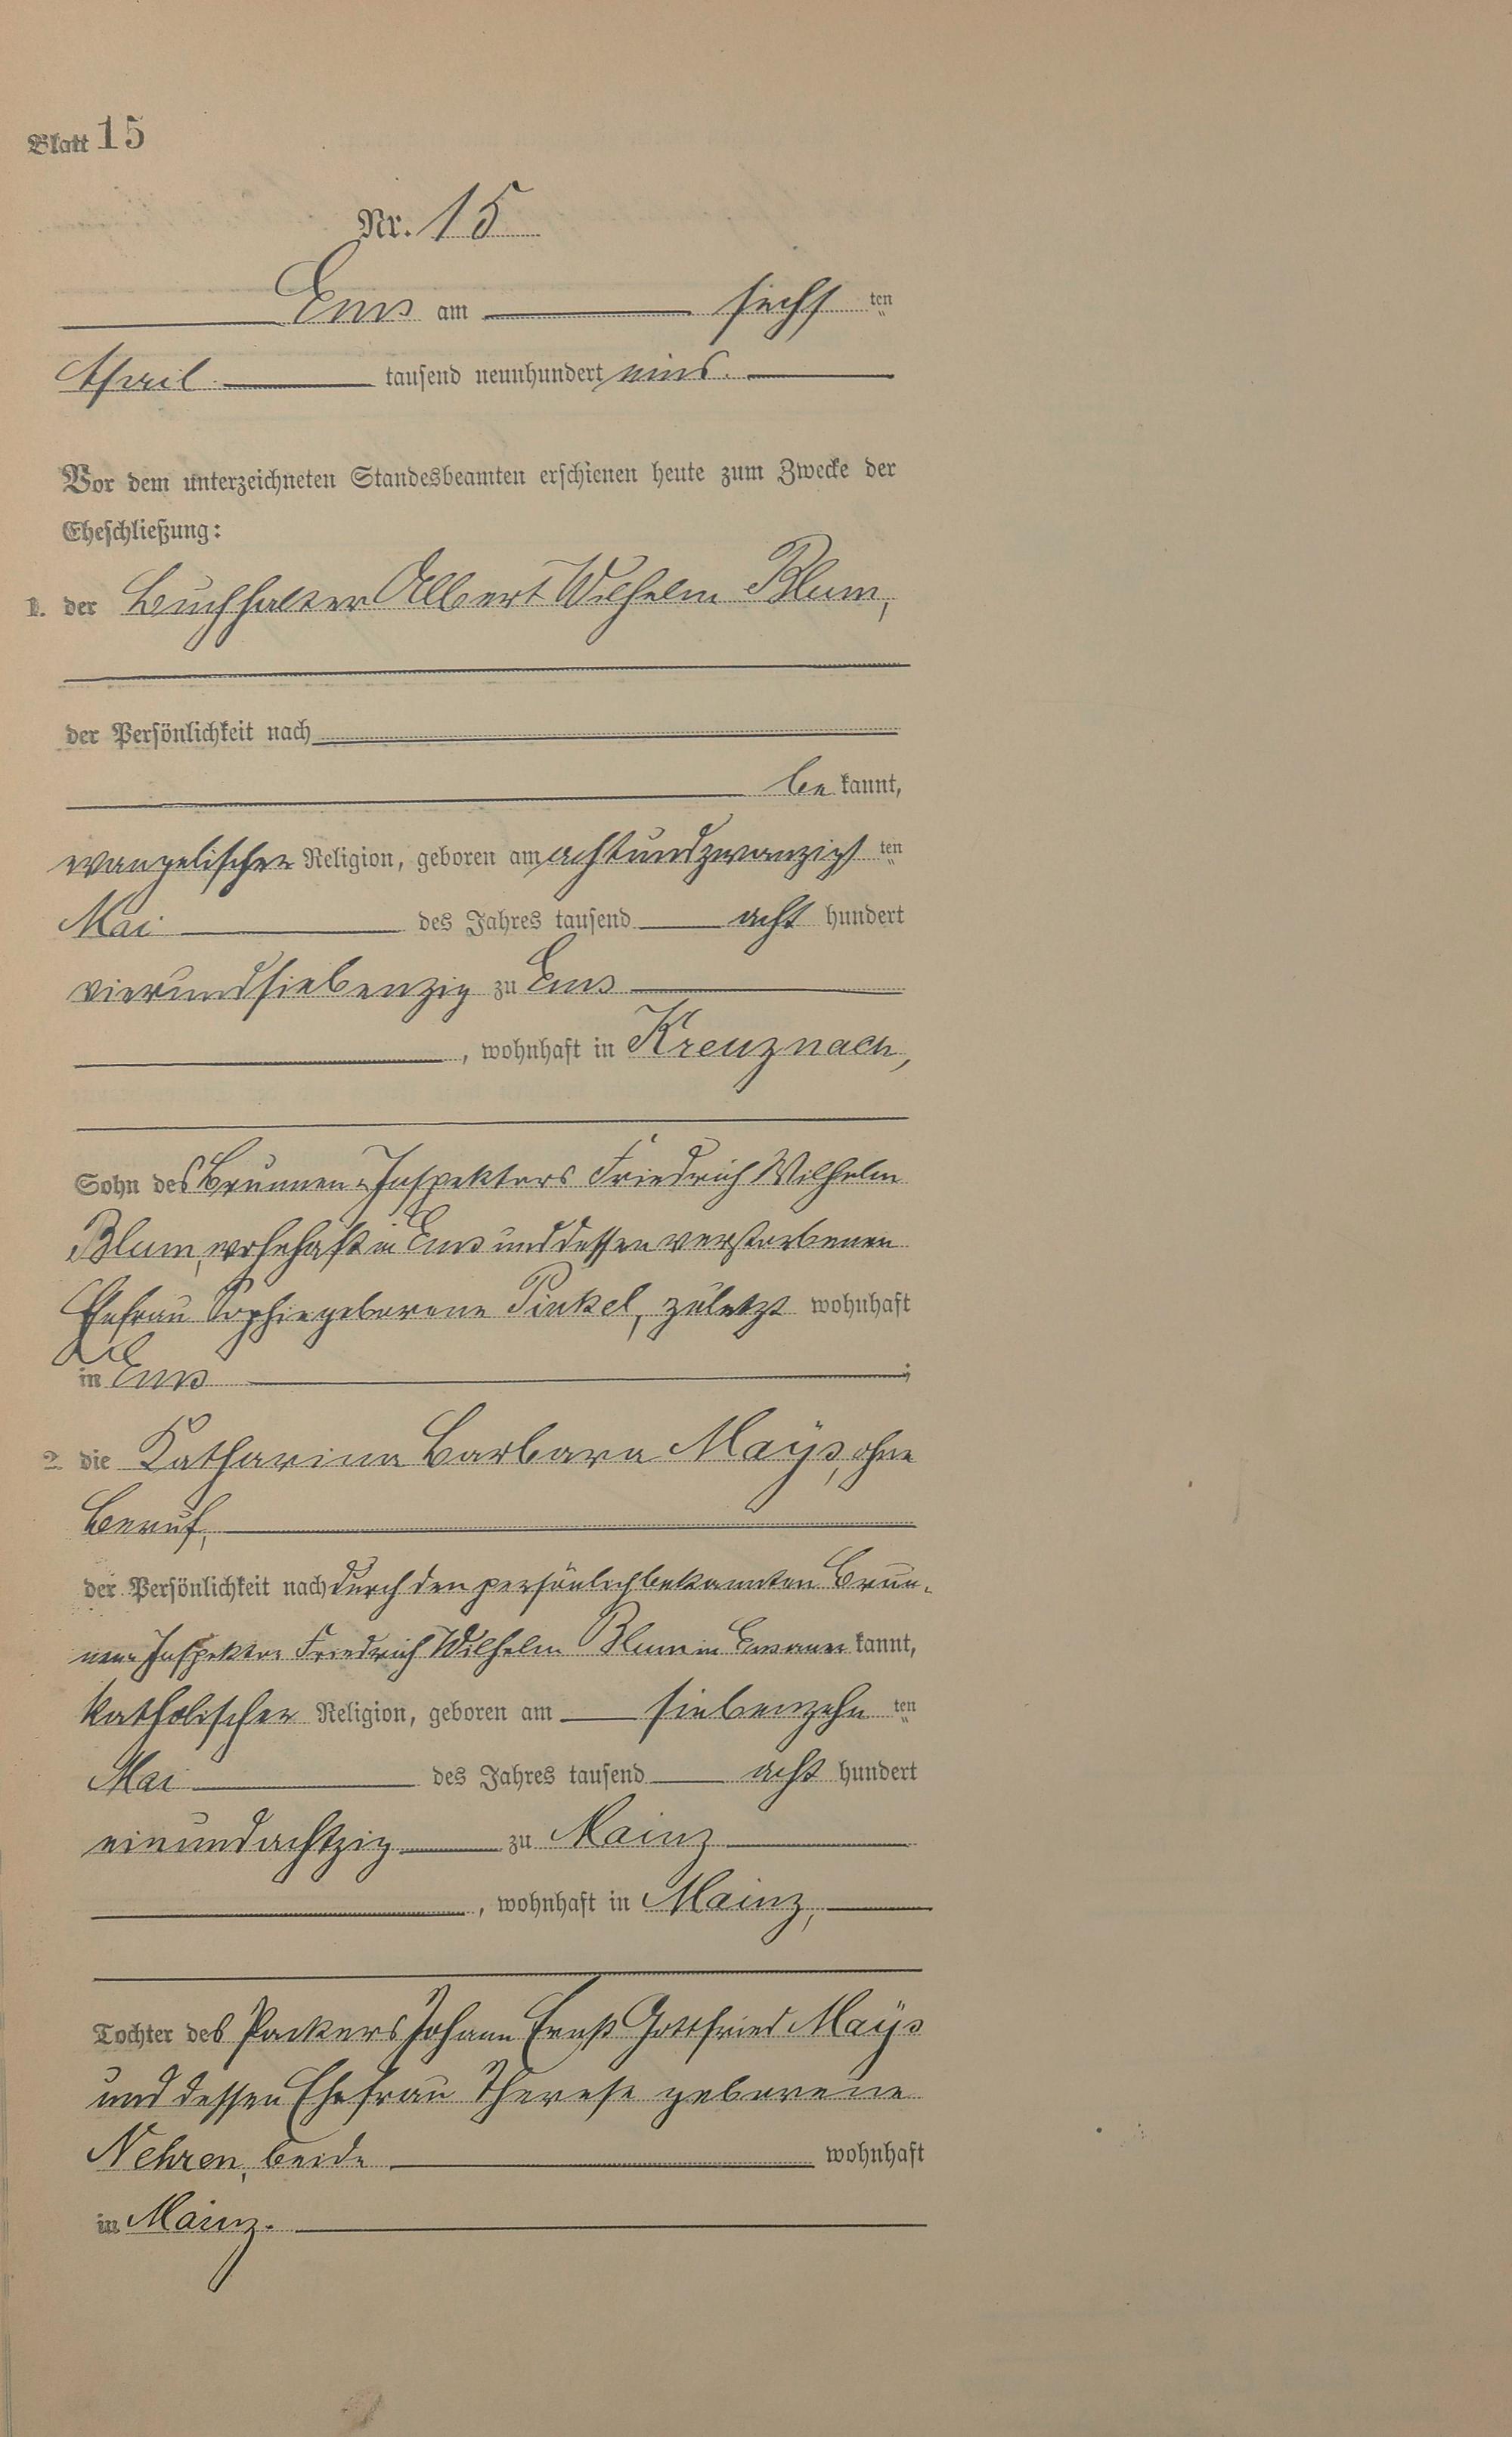 Blatt 15
Nr. 15
Ems am sechs ten
April tausend neunhundert eins.
Vor dem unterzeichneten Standesbeamten erschienen heute zum Zwecke der
Eheschließung:
1. der Buchhalter Albert Wilhelm Blum,
der Persönlichkeit nach
be kannt,
evangelischer Religion, geboren am achtundzwanzigs ten
Mai des Jahres tausend acht hundert
vierundsiebenzig zu Ems
, wohnhaft in Kreuznach,
Sohn des Brunnen-Inspektors Friedrich Wilhelm
Blum, wohnhaft in Ems und dessen verstorbenen
Ehefrau Sophie geborene Pinkel, zuletzt wohnhaft
in Ems ;
2. die Katharina Barbara Mays, ohne
Beruf,
der Persönlichkeit nach durch den persönlich bekannten Brun-
nen-Inspektor Friedrich Wilhelm Blum in Ems aner kannt,
katholischer Religion, geboren am siebenzehn ten
Mai des Jahres tausend acht hundert
einundachtzig zu Mainz
, wohnhaft in Mainz,
Tochter des Packers Johann Ernst Gottfried Mays
und dessen Ehefrau Therese geborene
Nehren, beide wohnhaft
in Mainz.